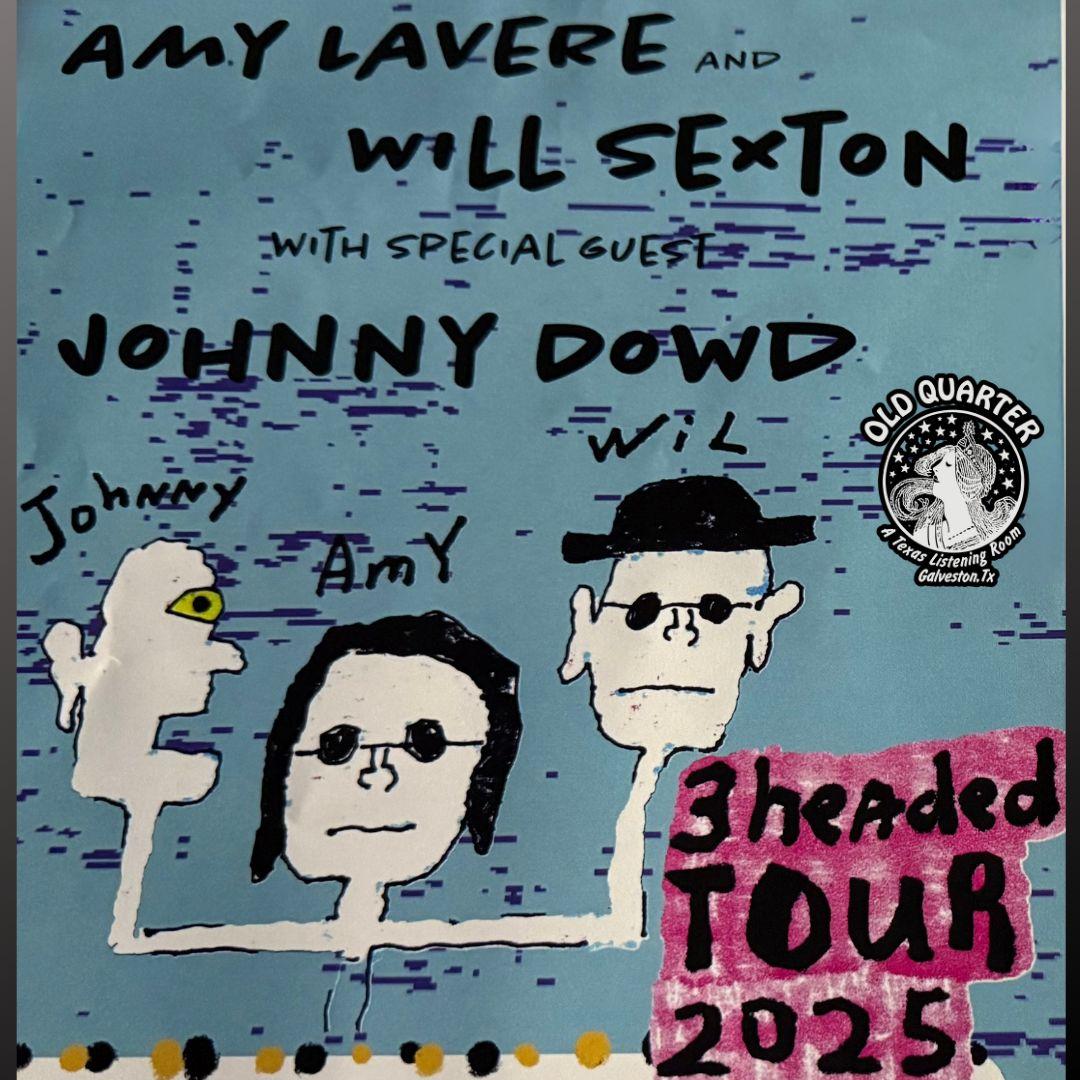 AMY LAVERE AND
WILL SEXTON
WITH SPECIAL GUEST
JOHNNY DOWD
WiL
OLD QUARTER
A Texas Listening Room
Galveston, Tx
Johnny
AmY
3 headed
TOUR
2025.